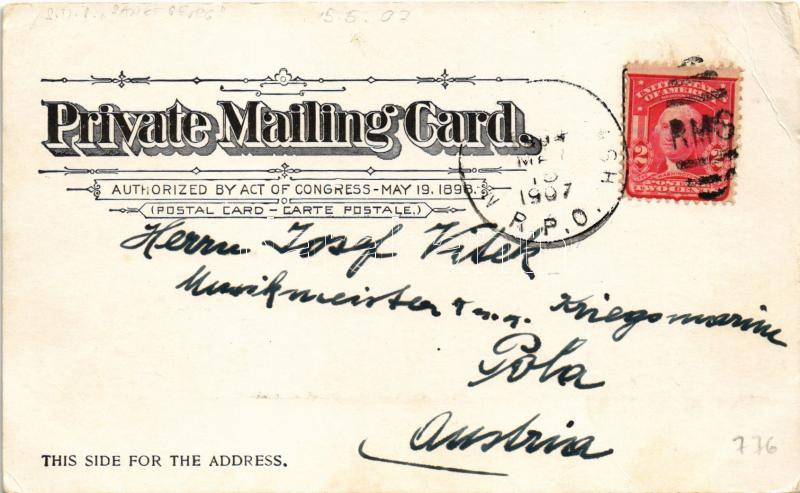 S.M.S. "SANKT GEORG"
15.5.07
Private Mailing Card.
AUTHORIZED BY ACT OF CONGRESS-MAY 19, 1898.
(POSTAL CARD - CARTE POSTALE.)
1907
R.P.O.
RMS
UNITED STATES
OF AMERICA
2 2
POSTAGE
TWO CENTS
Herrn Josef Vitek
Musikmeister
Kriegsmarine
Pola
Austria
THIS SIDE FOR THE ADDRESS.
776